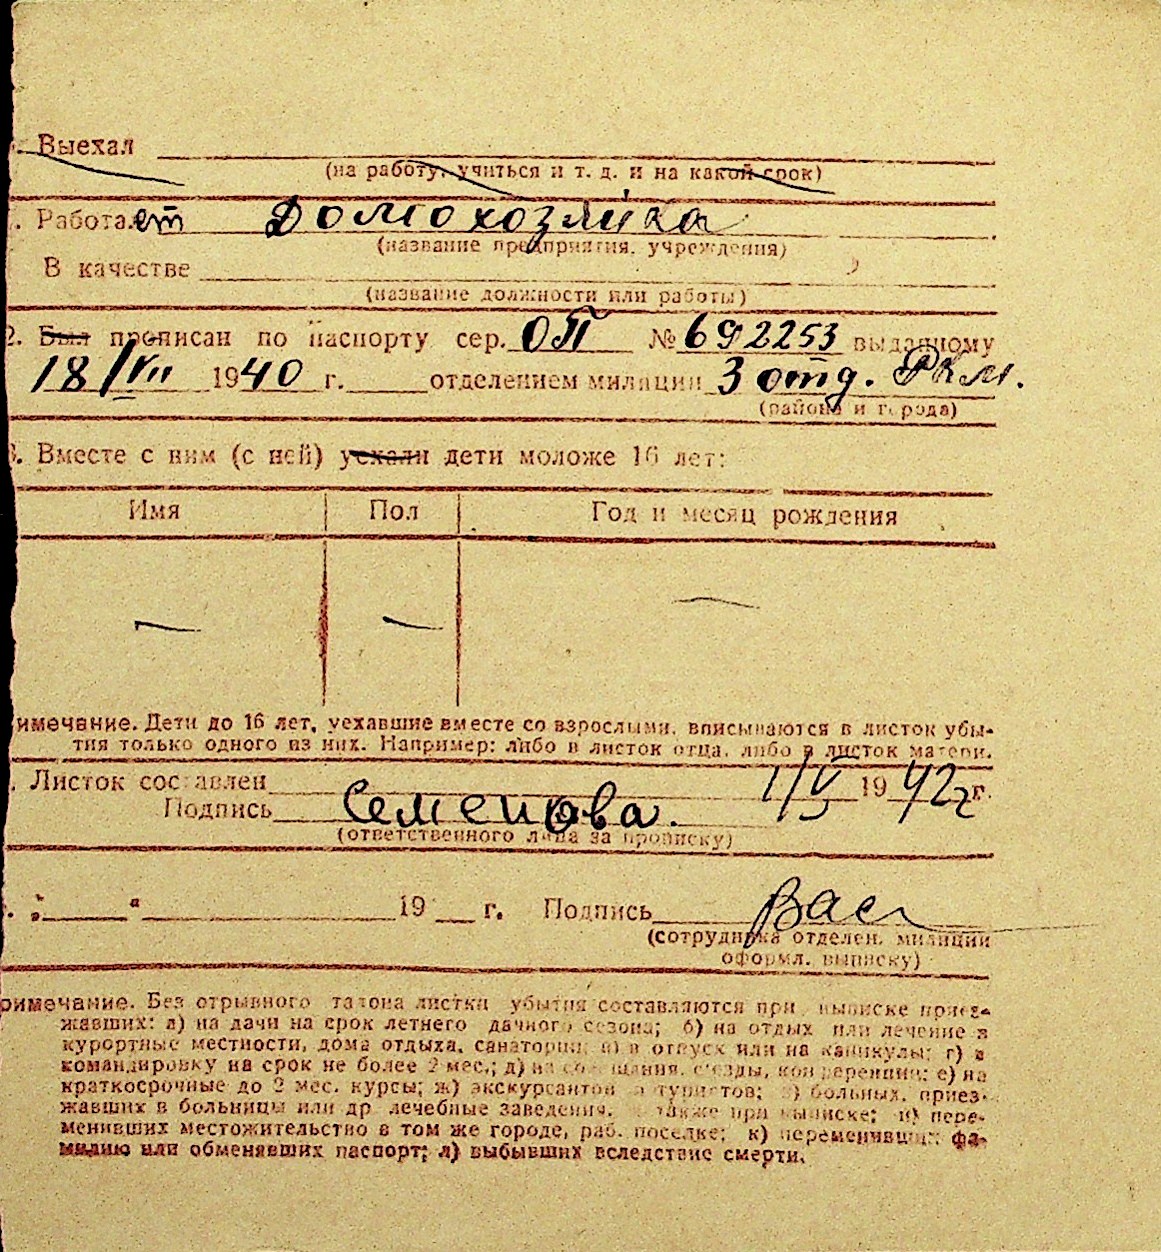 . Выехал
(на работу, учиться и т. д. и на какой срок)
. Работает Домохозяйка
(название предприятия, учреждения)
В качестве
(название должности или работы)
2. Был прописан по паспорту сер. ОП № 692253 выданному
18/VII 1940 г. отделением милиции 3 отд. РКМ.
(района и города)
3. Вместе с ним (с ней) уехали дети моложе 16 лет:
Имя Пол Год и месяц рождения
— — —
имечание. Дети до 16 лет, уехавшие вместе со взрослыми, вписываются в листок убы-
тия только одного из них. Например: либо в листок отца, либо в листок матери.
. Листок составлен 1/V 1942 г.
Подпись Семенова.
(ответственного лица за прописку)
. „ " 19 г. Подпись Вас
(сотрудника отделен. милиции
оформл. выписку)
римечание. Без отрывного талона листки убытия составляются при выписке приез-
жавших: а) на дачи на срок летнего дачного сезона; б) на отдых или лечение в
курортные местности, дома отдыха, санатории; в) в отпуск или на каникулы; г) в
командировку на срок не более 2 мес.; д) на совещания, съезды, конференции; е) на
краткосрочные до 2 мес. курсы; ж) экскурсантов и туристов; з) больных, приез-
жавших в больницы или др лечебные заведения, а также при выписке; и) пере-
менивших местожительство в том же городе, раб. поселке; к) переменивших фа-
милию или обменявших паспорт; л) выбывших вследствие смерти.